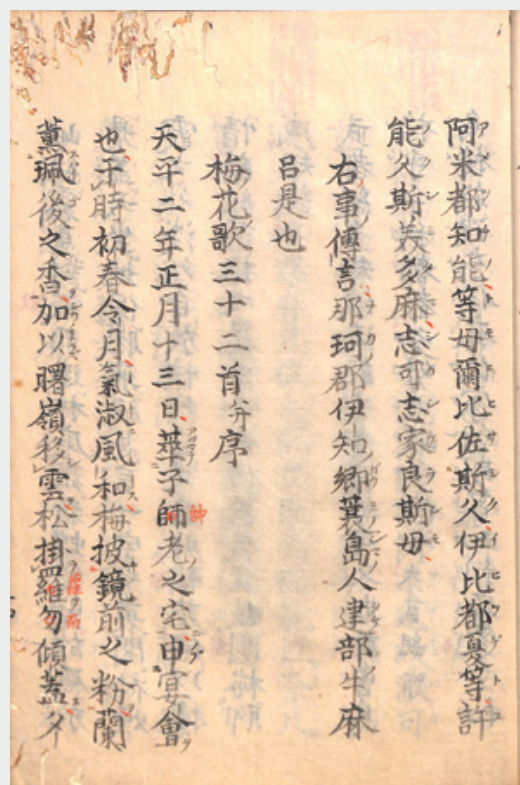 阿米都知能等母爾比佐斯久伊比都夏等許
能久斯美多麻志可志家良斯母
右事傳言那珂郡伊知郷蓑島人建部牛麻
呂是也
梅花歌三十二首并序
天平二年正月十三日萃子師老之宅申宴會
也于時初春令月氣淑風和梅披鏡前之粉蘭
薫珮後之香加以曙嶺移雲松掛羅勿傾盖夕